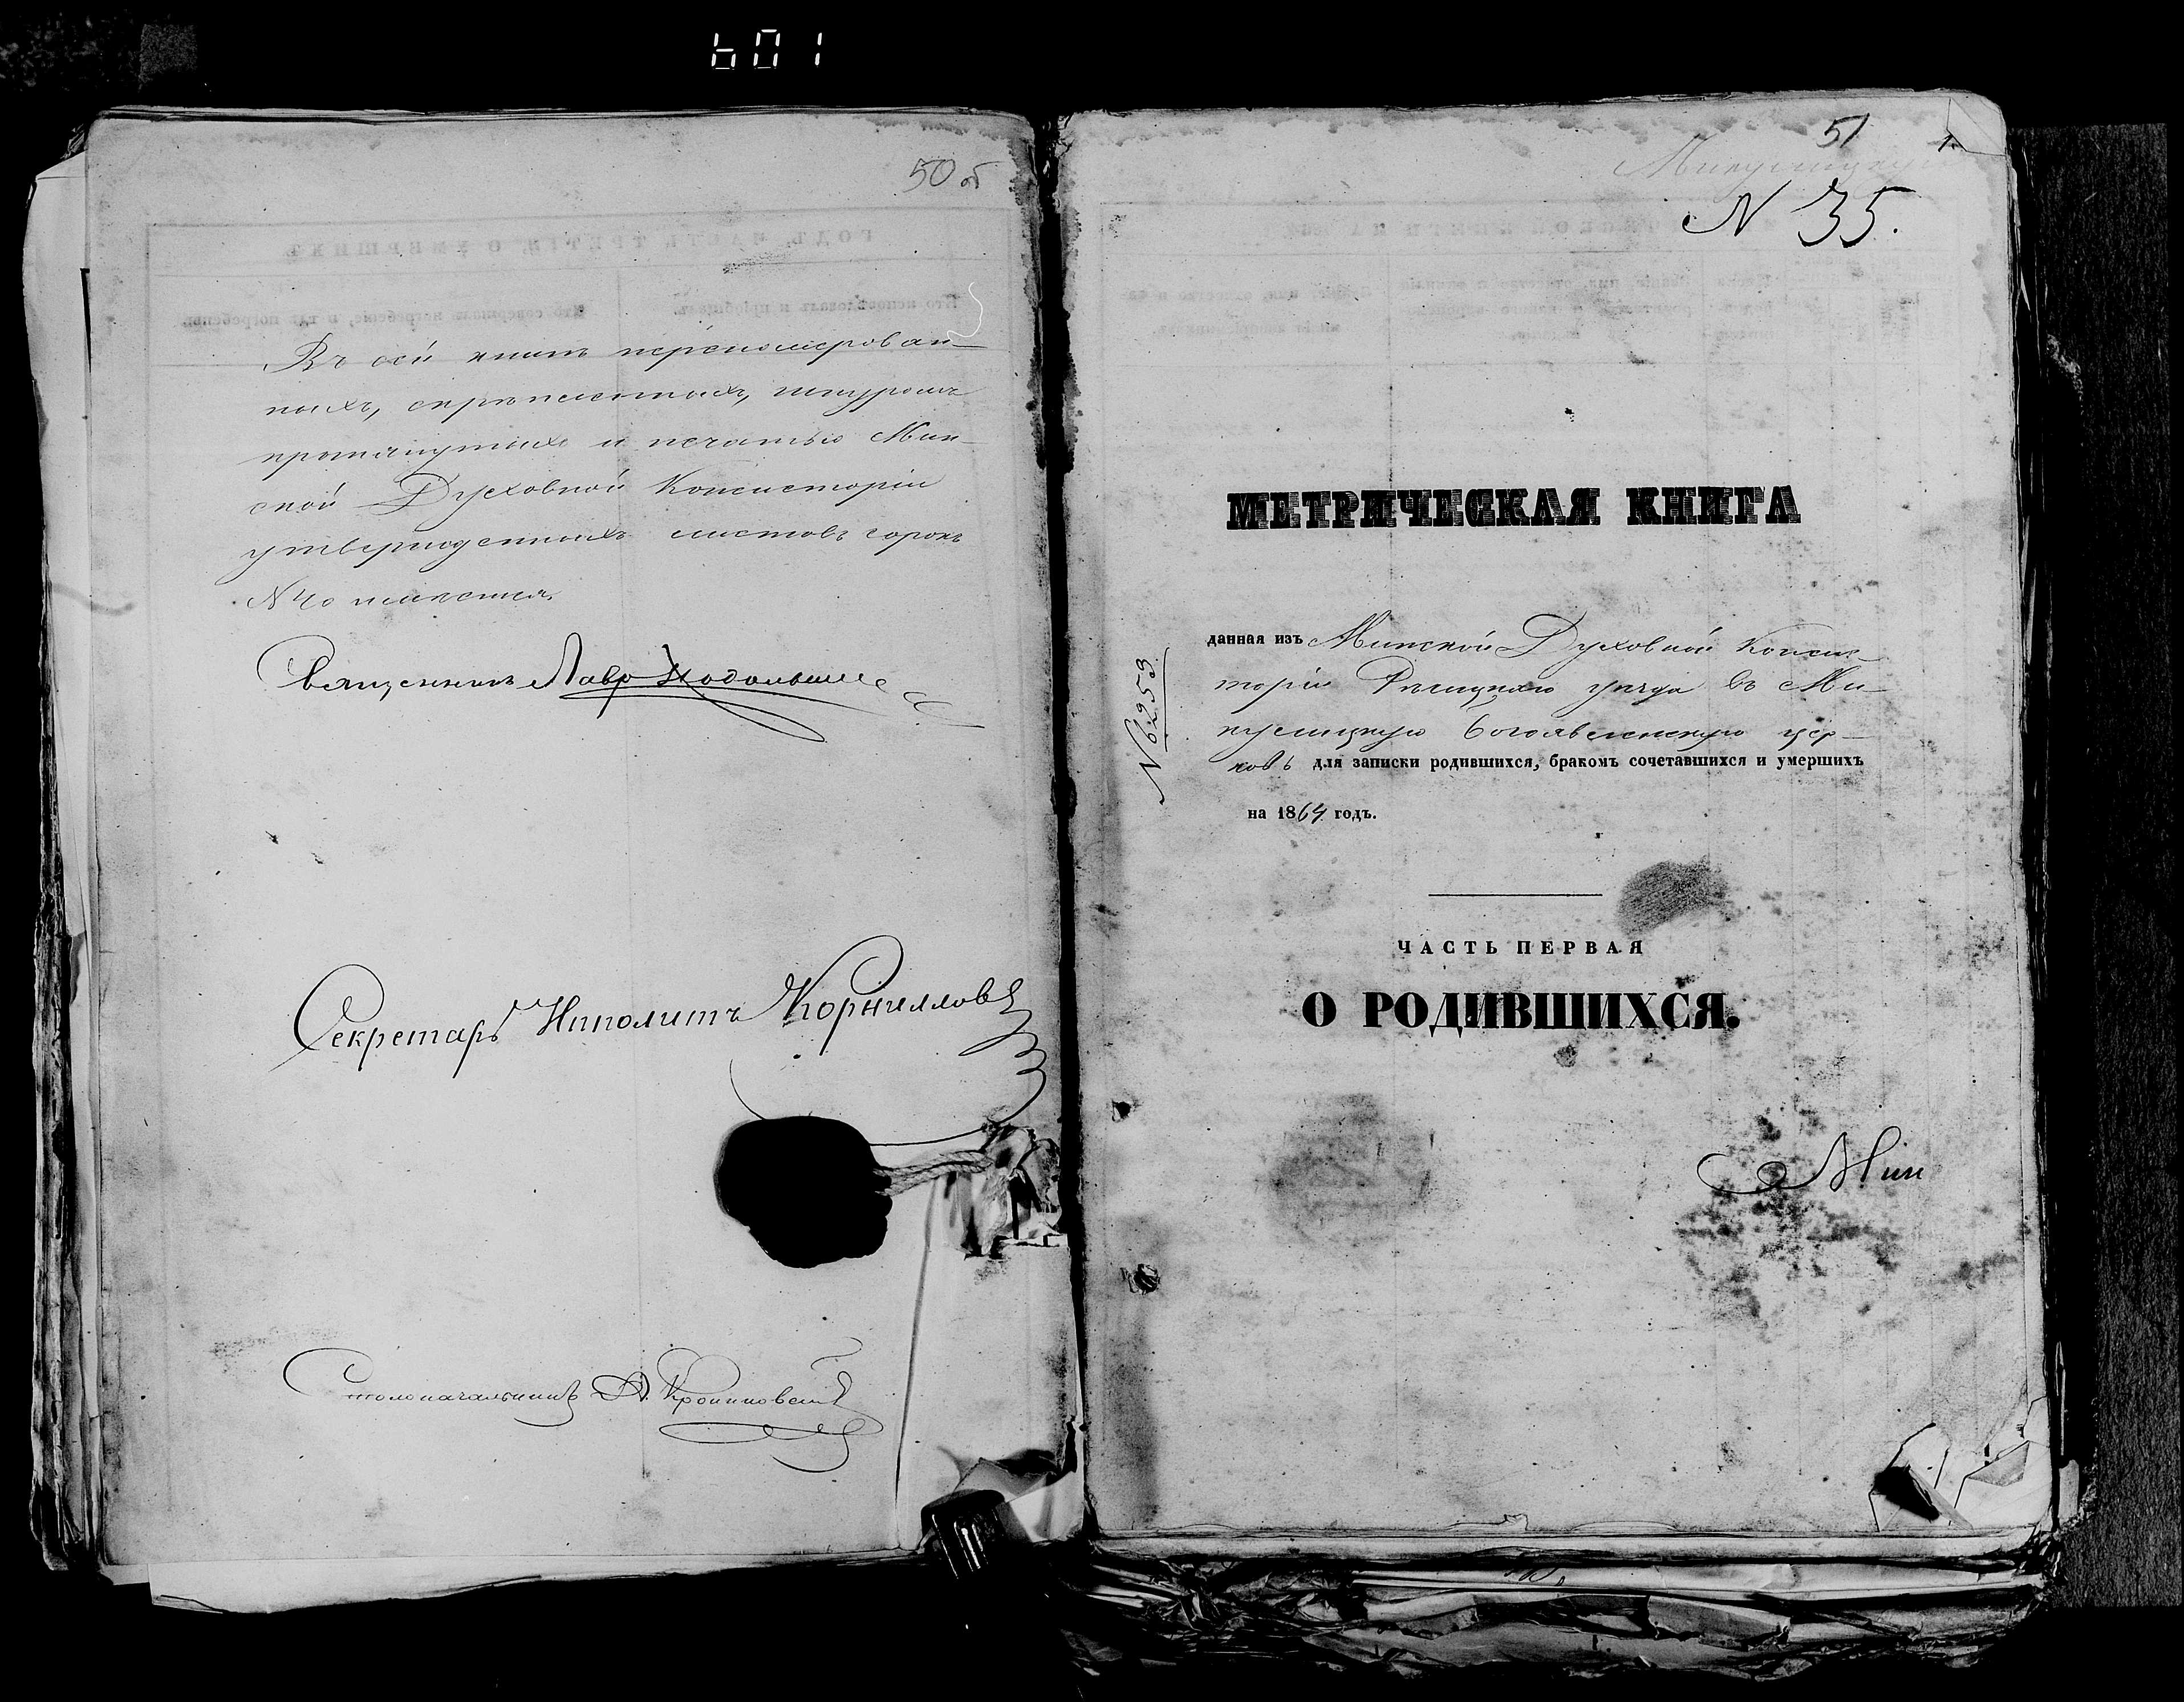 601
50 об
Въ сей книгѣ перенумерован-
ныхъ, скрѣпленныхъ, шнуромъ
протянутыхъ и печатью Мин-
ской Духовной Консисторіи
утвержденныхъ листовъ сорокъ
N 40
Священникъ Лавръ
Секретарь Иполитъ Корниловъ
Столоначальникъ
51
1.
N 35.
МЕТРИЧЕСКАЯ КНИГА
данная изъ Минской Духовной Консис-
торіи Рѣчицкаго уѣзда въ Ми-
кулицкую Богоявленскую цер-
ковь для записки родившихся, бракомъ сочетавшихся и умершихъ
на 1864 годъ.
N 6253
ЧАСТЬ ПЕРВАЯ
О РОДИВШИХСЯ.
Мин